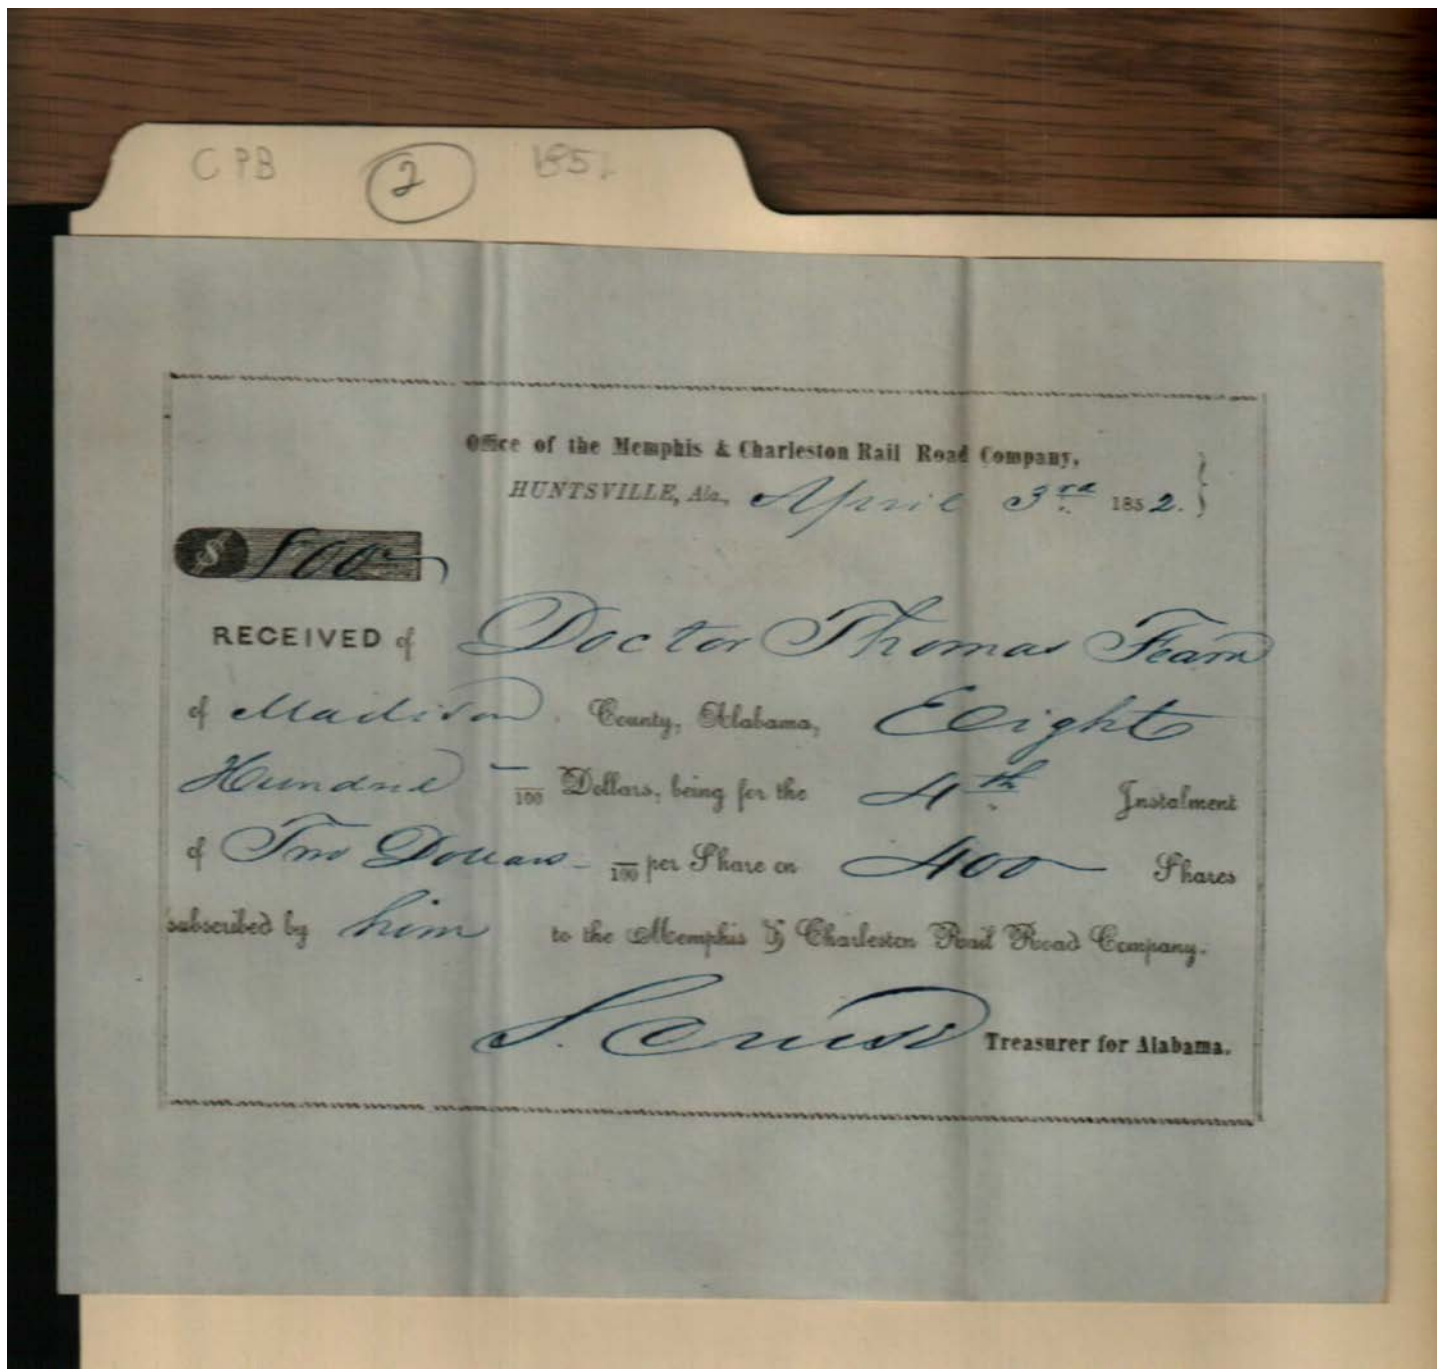 CPB 2 185
Office of the Memphis & Charleston Rail Road Company,
HUNTSVILLE, Ala., April 3rd 1852.
$ 800
RECEIVED of Doctor Thomas Fearn
of Madison County, Alabama, Eight
Hundred — /100 Dollars, being for the 4th Instalment
of Two Dollars — /100 per Share on 400 Shares
subscribed by him to the Memphis & Charleston Rail Road Company.
S. Cruse Treasurer for Alabama.